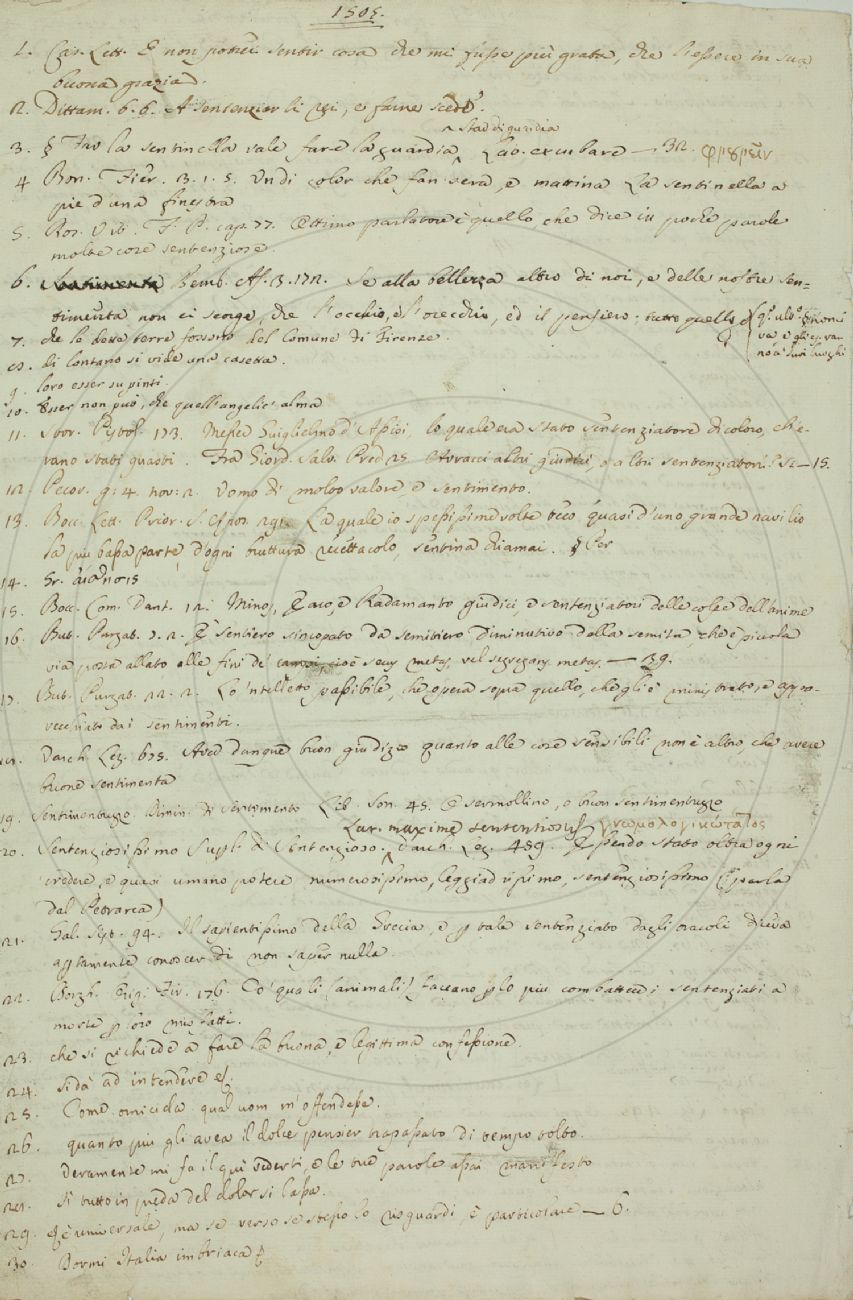 1505.
1. Cas. Lett. E non potrei sentir cosa che mi fusse più grata, che l'essere in sua
buona grazia.
2. Dittam. 6. 6. A sentenziar li rei, e farne
^ Star di guardia
3. § Far la sentinella vale fare la guardia ^ Lat. excubare — 32. φρουρεῖν
4 Bon. Fier. 3. 1. 5. Un di color che fan sera, e mattina La sentinella a
piè d'una finestra
5. Ros. Vit. F. P. cap. 77. Ottimo parlatore è quello, che dice in poche parole
molte cose sentenziose.
6. Bemb. As. 3. 172. Se alla bellezza altro di noi, e delle nostre sen=
timenta non ci scorge, che l'occhio, e l'orecchio, ed il pensiero; tutto quello
7. che le dette terre fossono del Comune di Firenze.
8. di lontano si vide una casetta.
9. loro esser su pinti.
10. Esser non può, che quell'angelic'alma
11. Stor. Pistol. 173. Messer Guiglielmo d'Assisi, lo quale era stato sentenziatore di coloro, ch'e-
rano stati guasti. Fra Giord. Salv. Pred. 25. altri giudici, o altri sentenziatori — 15.
12. Pecor. g. 4. nov. 2. Uomo di molto valore, e sentimento.
13. Bocc. Lett. Prior. S. Apos. 291. La quale io spessissime volte quasi d'uno grande navilio
la più bassa parte, d'ogni bruttura recettacolo, sentina chiamai. § Per
14.
15. Bocc. Com. Dant. 12. Minos, Eaco, e Radamanto giudici, e sentenziatori delle colpe dell'anime
16. But. Purgat. 7. 2. E sentiero sincopato da semitiero diminutivo della semita, che è picciola
via posta allato alle fini de' campi, cioè secus metas, vel segregans metas. — 39.
17. But. Purgat. 22. 2. Lo 'ntelletto passibile, che opera sopra quello, che gli è ministrato, e appa-
recchiato dai sentimenti.
18. Varch. Lez. 635. Aver dunque buon giudizio quanto alle cose sensibili non è altro, che avere
buone sentimenta
19. Sentimentuzzo. Dimin. di Sentimento Lib. Son. 45. E sermollino, e buon sentimentuzzo
Lat. maxime sententiosus γνωμολογικώτατος
20. Sentenziosissimo Superl. di Sentenzioso. ^ Varch. Lez. 459. Essendo stato oltra ogni
credere, e quasi umano potere numerosissimo, leggiadrissimo, sentenziosissimo (parla
del Petrarca)
21. Gal. Sist. 94. Il sapientissimo della Grecia, e per tale sentenziato dagli oracoli diceva
apertamente conoscer di non saper nulla.
22. Borgh. Orig. Fir. 176. Co' quali (animali) faceano per lo più combattere i sentenziati a
morte per loro misfatti.
23. che si richiede a fare la buona, e legittima confessione.
24. si dà ad intendere
25. Come omicida qual uom m'offendesse.
26. quanto più gli avea il dolce pensier trapassato di tempo tolto.
27. Veramente mi fa il qui vederti, e le tue parole assai manifesto
28. Sì tutto in preda del dolor si lassa.
29. è universale, ma se verso se stesso lo risguardi è particolare — 6.
30. Dormi Italia imbriaca